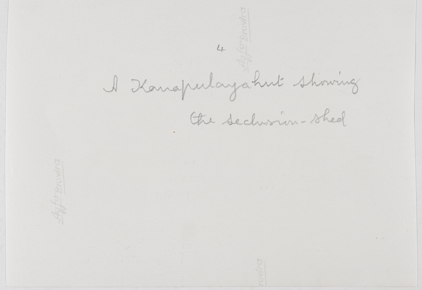 4
A Kanapulaya hut showing
the seclusion-shed